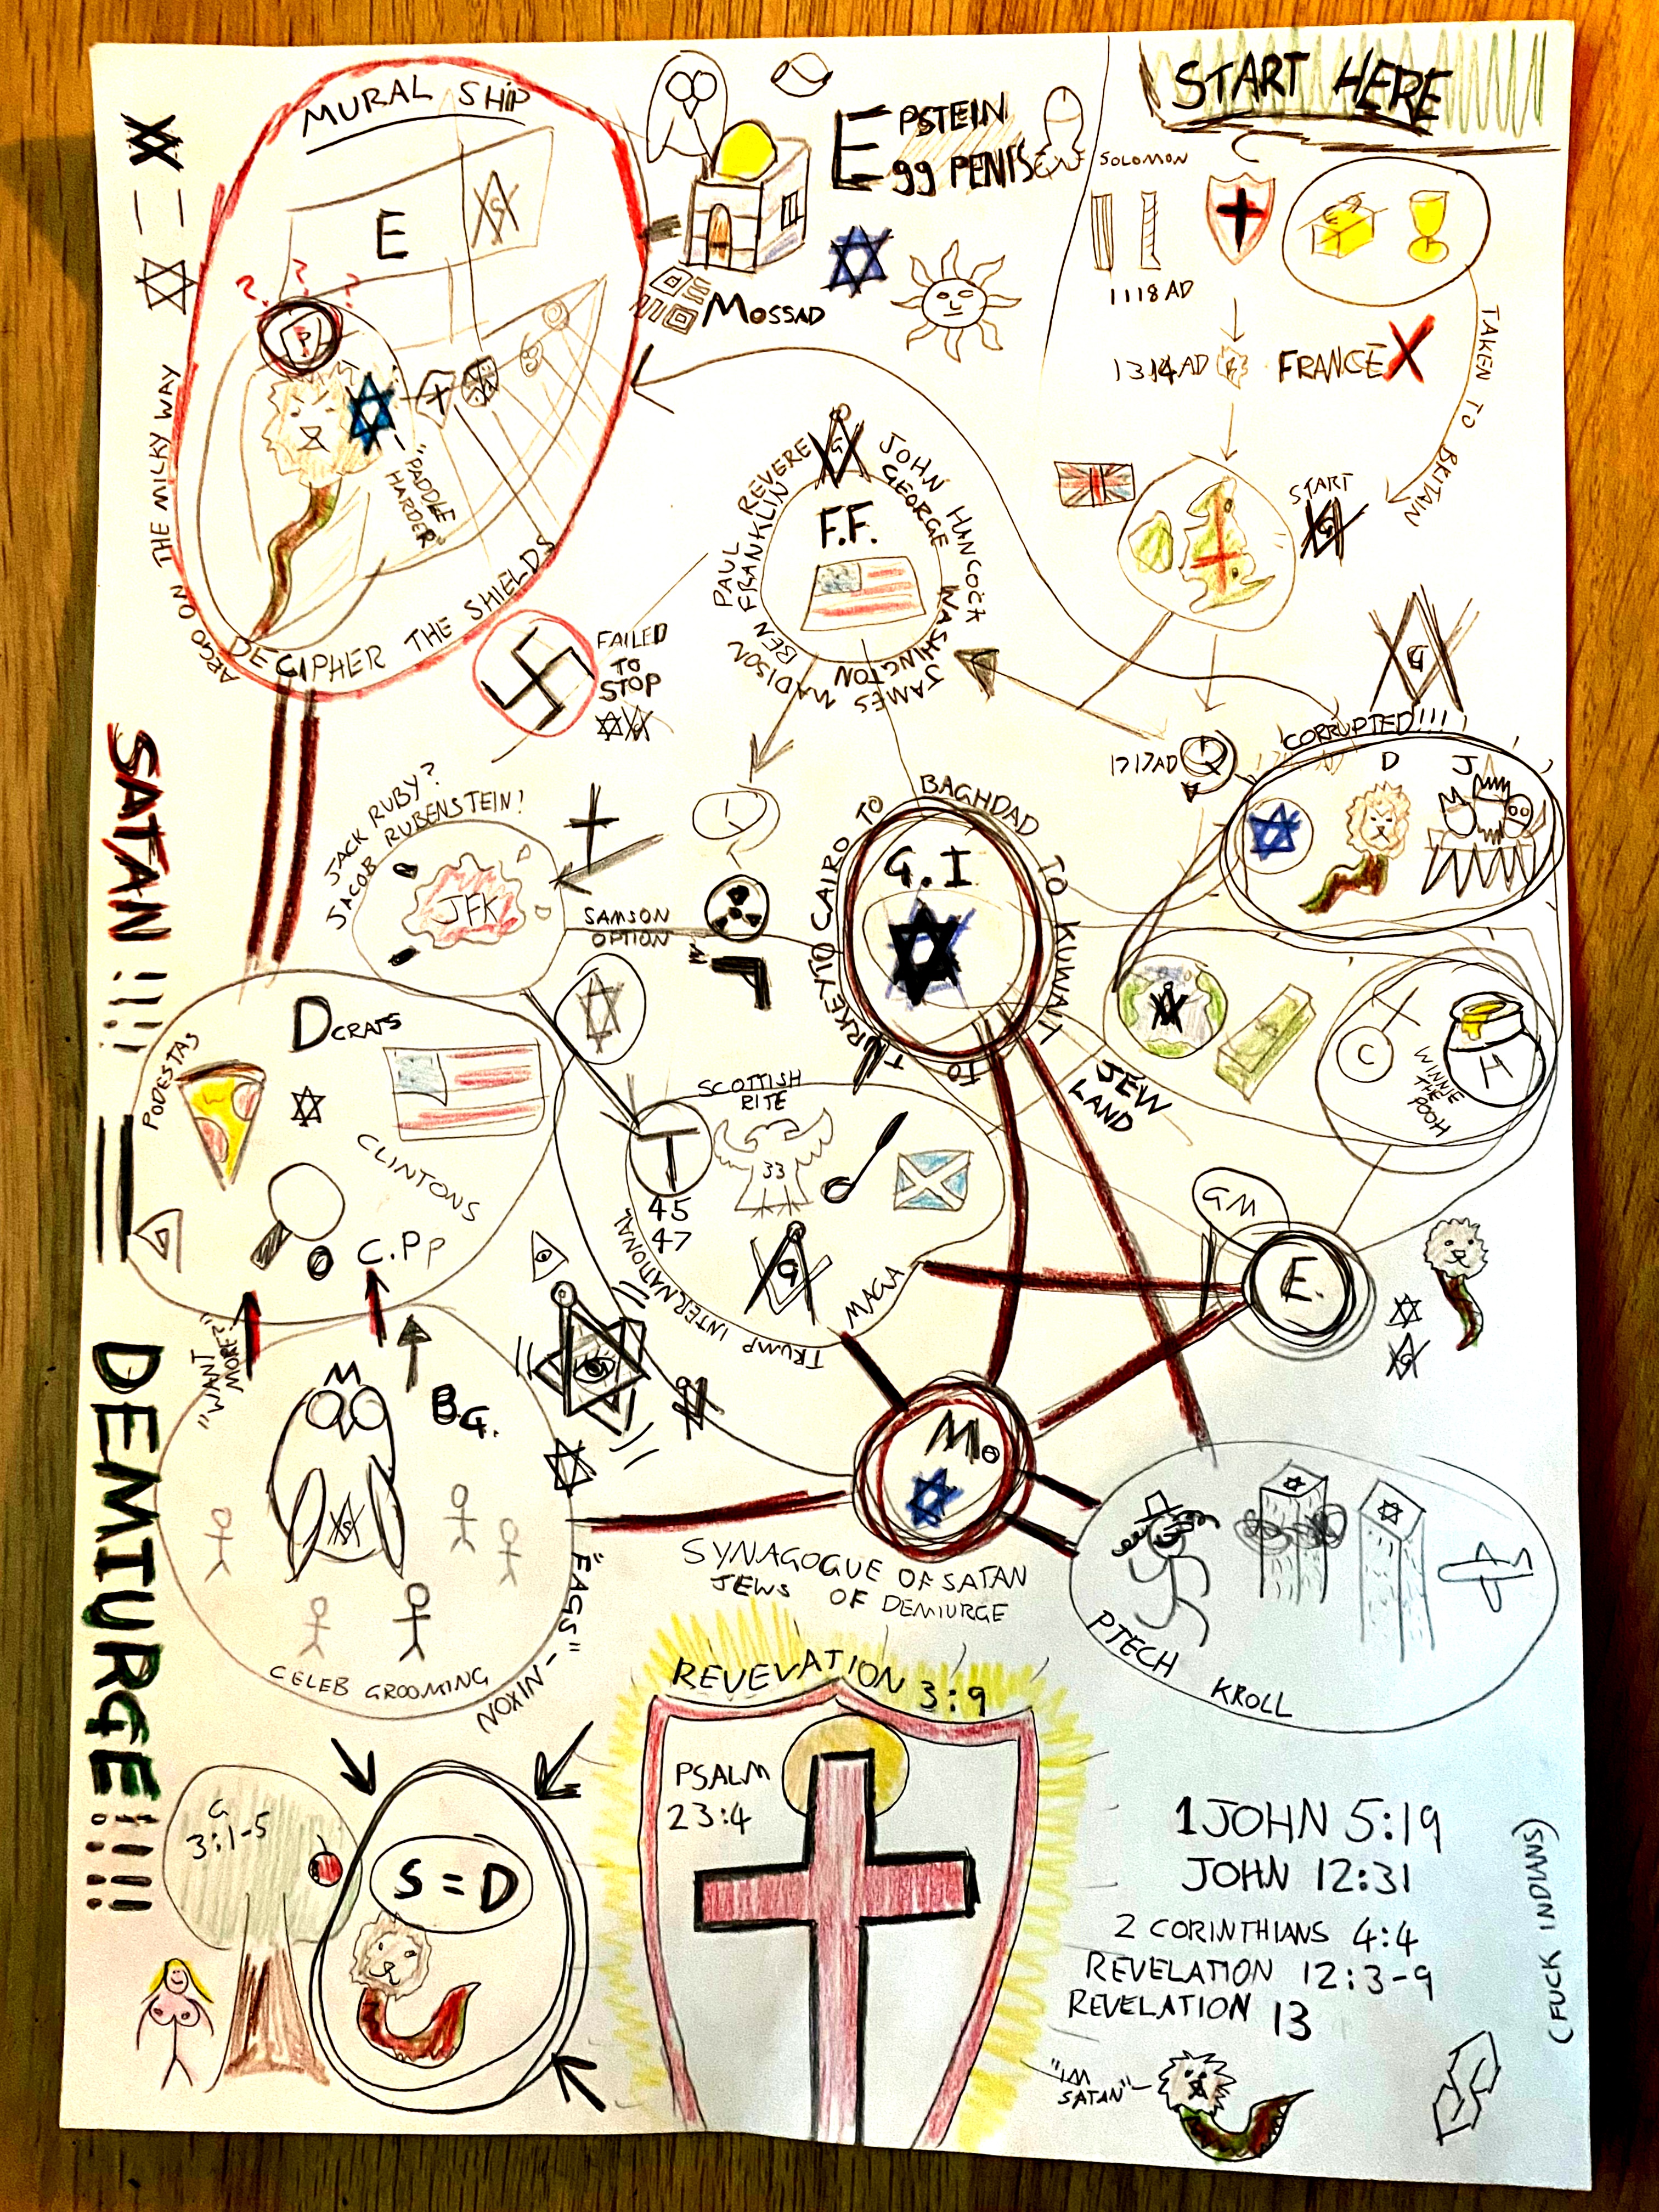 START HERE
MURAL SHIP
E
G
EPSTEIN
Egg PENIS
SOLOMON
1118 AD
TAKEN TO BRITAIN
MOSSAD
1314AD
FRANCE X
? ? ?
"PADDLE HARDER"
ARGO ON THE MILKY WAY
DECIPHER THE SHIELDS
START
G
G
F.F.
PAUL REVERE
BEN FRANKLIN
JOHN HANCOCK
GEORGE WASHINGTON
JAMES MADISON
FAILED
TO
STOP
G
1717AD
CORRUPTED!!!
D J
SATAN !!!
JACK RUBY?
JACOB RUBENSTEIN!
JFK
SAMSON
OPTION
G.I
TURKEY TO CAIRO TO BAGHDAD TO KUWAIT TO
JEW
LAND
C
WINNIE
THE
POOH
H
DCRATS
PODESTAS
CLINTONS
C.Pp
SCOTTISH
RITE
T
33
45
47
G
TRUMP INTERNATIONAL
MAGA
GM
E.
G
DEMIURGE!!!!!
"WANT
MORE?"
B.G.
G
CELEB GROOMING
"FAGS" - NIXON
Mo
SYNAGOGUE OF SATAN
JEWS OF DEMIURGE
PTECH KROLL
REVEVATION 3:9
PSALM
23:4
G
3:1-5
S = D
1JOHN 5:19
JOHN 12:31
2 CORINTHIANS 4:4
REVELATION 12:3-9
REVELATION 13
(FUCK INDIANS)
"IM
SATAN"